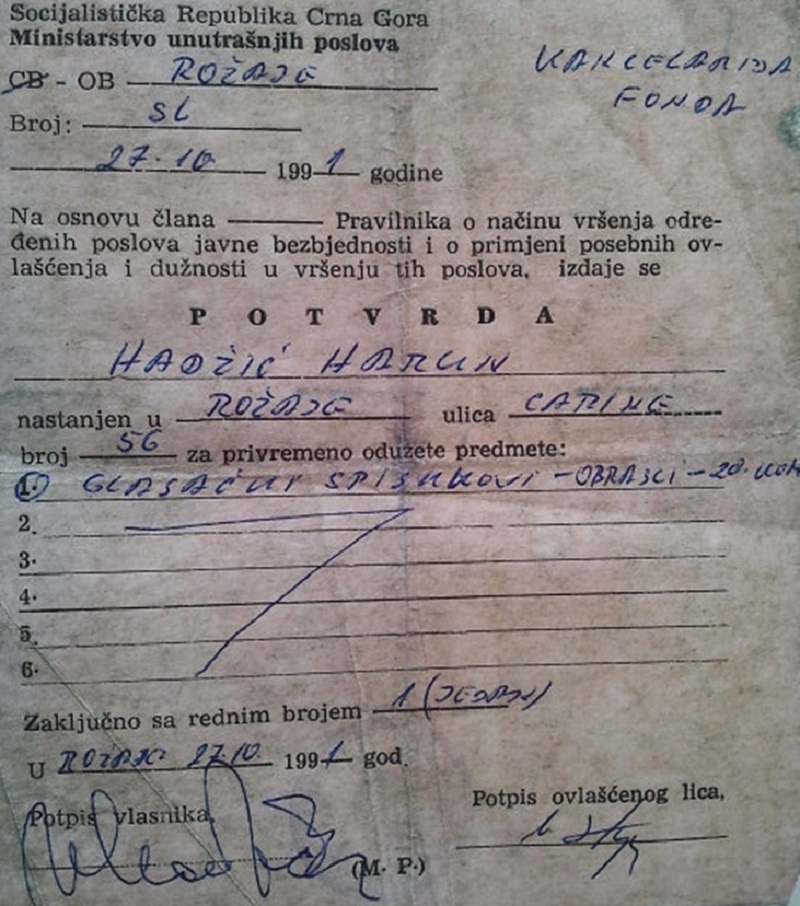 Socijalistička Republika Crna Gora
Ministarstvo unutrašnjih poslova
CB - OB ROŽAJE
KANCELARIJA
FONDA
Broj: Sl
27.10 1991 godine
Na osnovu člana ——— Pravilnika o načinu vršenja odre-
đenih poslova javne bezbjednosti i o primjeni posebnih ov-
lašćenja i dužnosti u vršenju tih poslova, izdaje se
P O T V R D A
HADŽIĆ HARUN
nastanjen u ROŽAJE ulica CARINE
broj 56 za privremeno odužete predmete:
1. GLASAČKI SPISKOVI - OBRASCI - 20. KOM
2.
3.
4.
5.
6.
Zaključno sa rednim brojem 1 (JEDAN)
U ROŽAJE 27.10. 1991 god.
Potpis vlasnika,
Potpis ovlašćenog lica,
(M. P.)